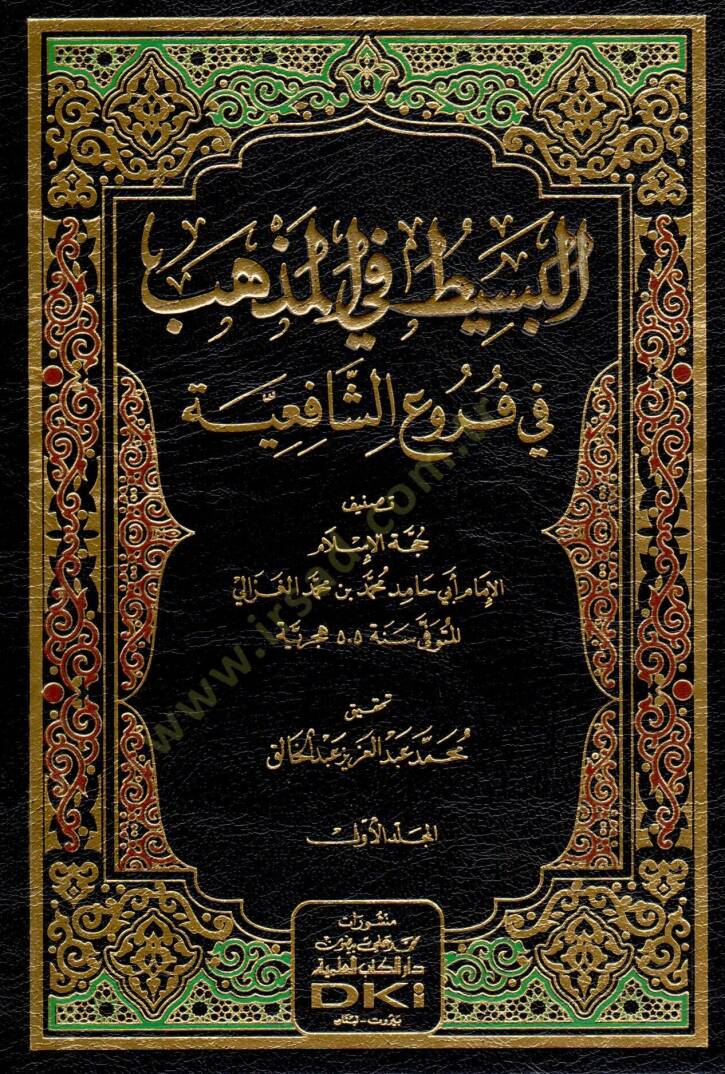 البسيط في المذهب
في فُرُوع الشَّافِعِيَّة
تصنيف
حُجَّة الإِسْلَام
الإِمَام أَبِي حَامِد مُحَمَّد بْن مُحَمَّد الغَزَالِي
المُتَوَفَّى سَنَة ٥٠٥ هِجْرِيَّة
تحقيق
مُحَمَّد عَبْد العَزِيز عَبْد الخَالِق
المجلّد الأوّل
منشورات
محمد علي بيضون
دار الكتب العلمية
DKi
بيروت - لبنان
www.irsad.com.tr